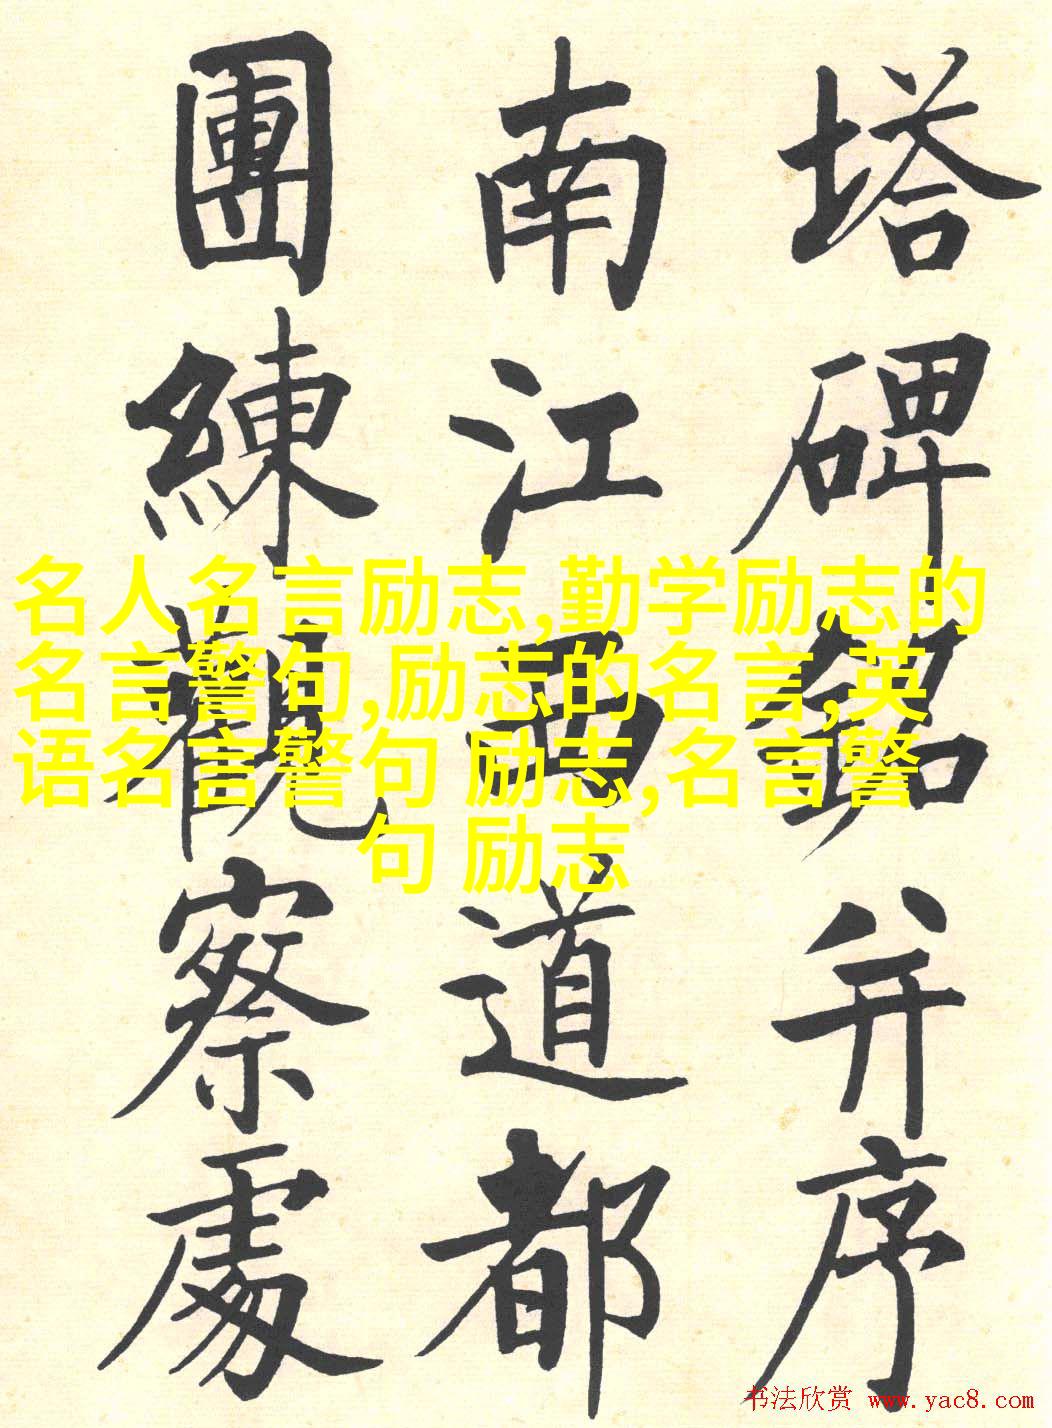 塔碑銘并序
南江西道都
團練觀察處
名人名言励志,勤学励志的
名言警句,励志的名言,英
语名言警句 励志,名言警
句 励志
书法欣赏 www.yac8.com